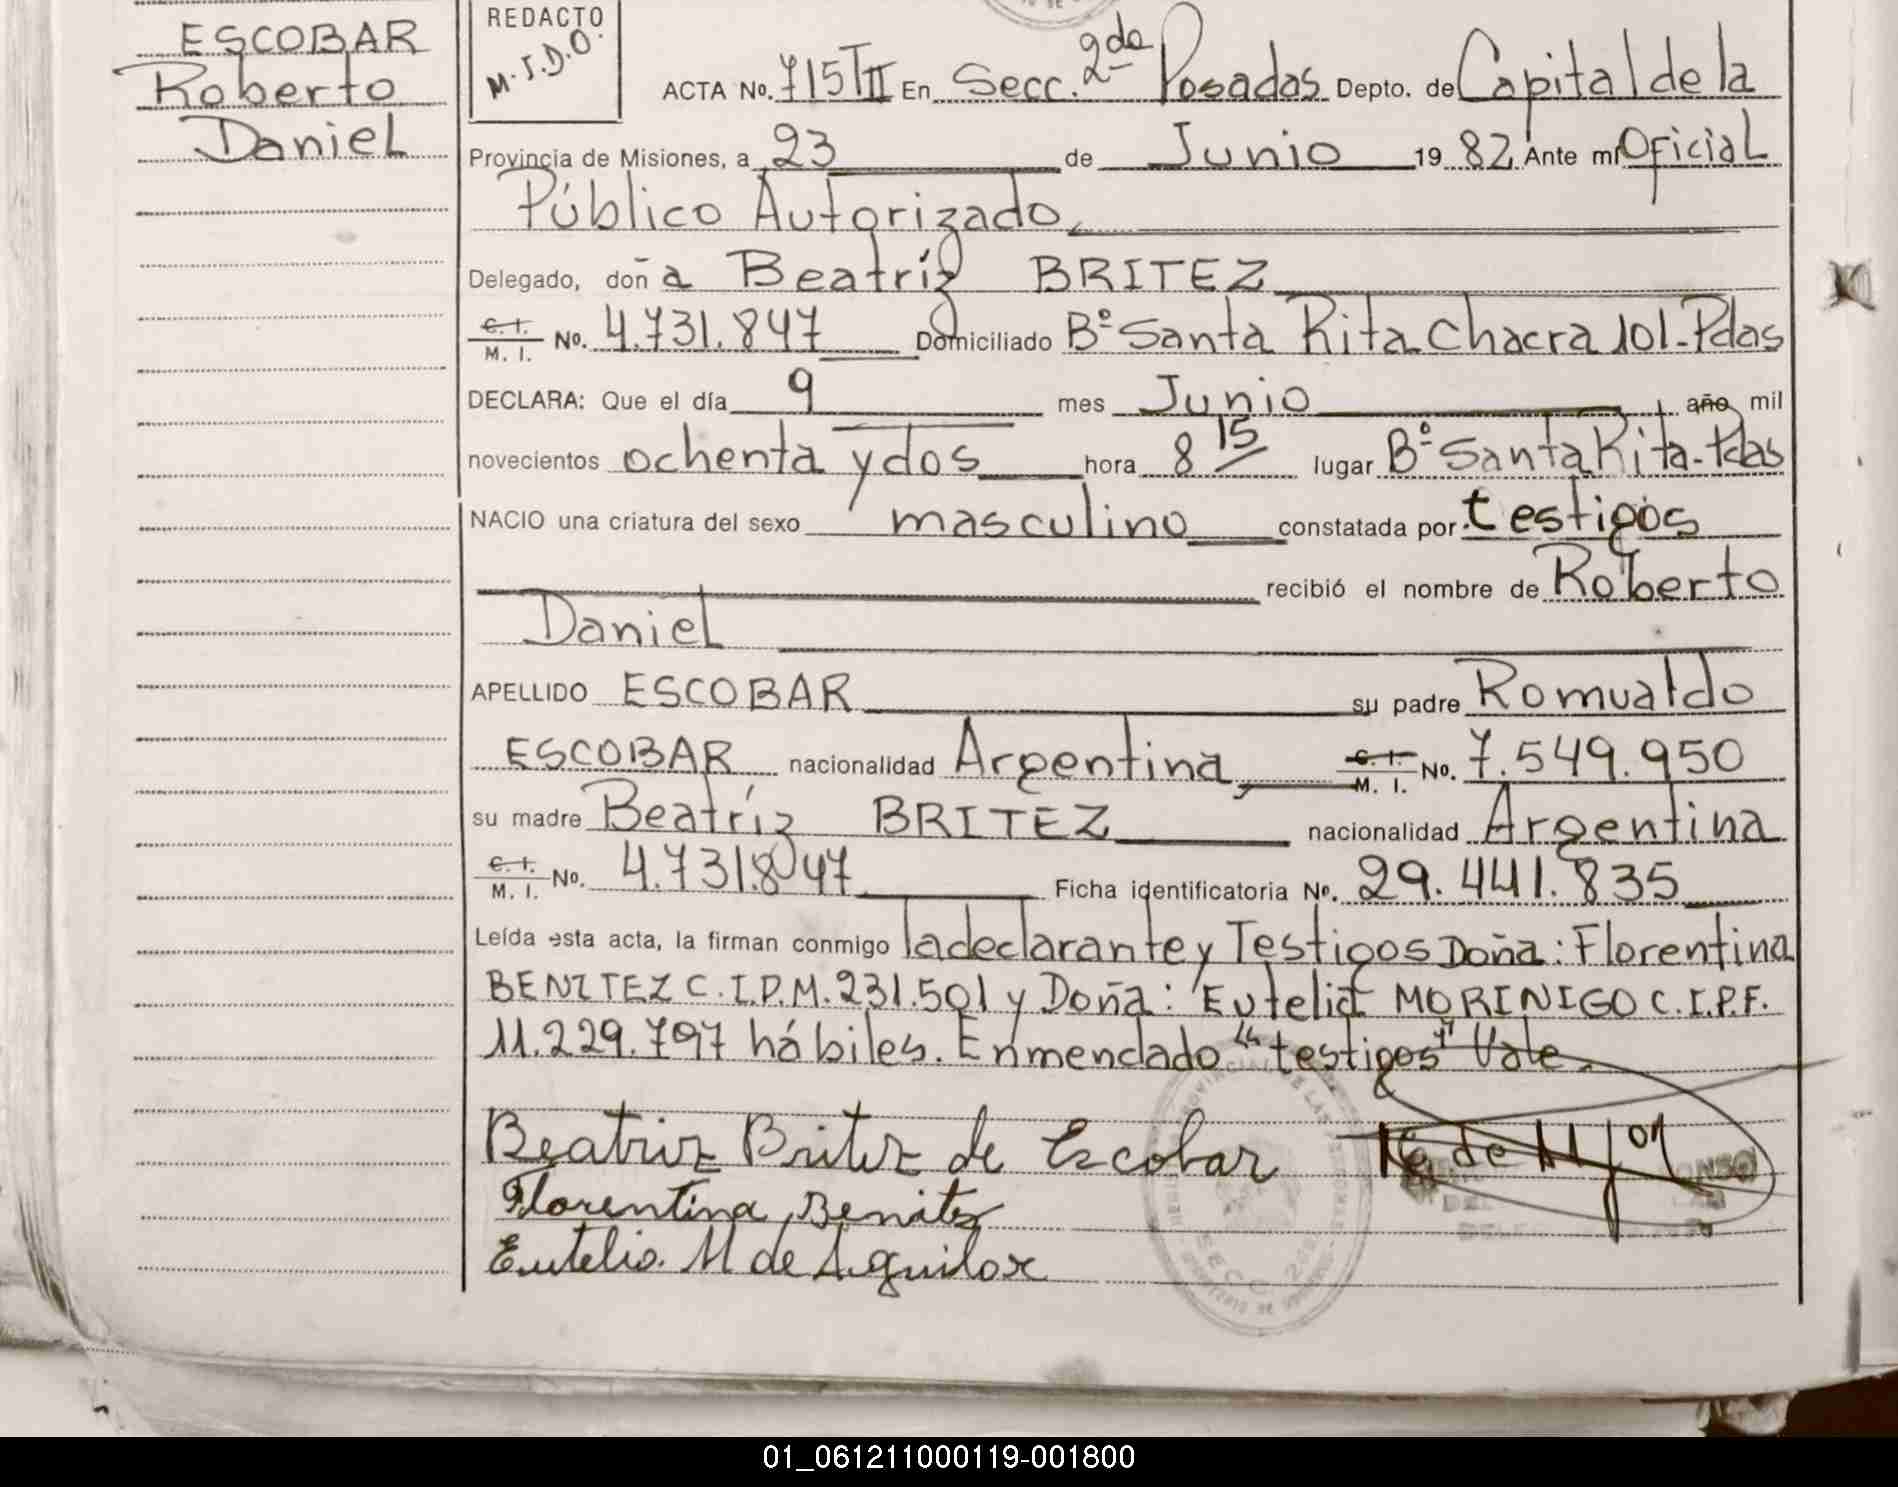 ESCOBAR
Roberto
Daniel
REDACTO
M.I.D.O.
ACTA No. 715 TII En Secc. 2da Posadas Depto. de Capital de la
Provincia de Misiones, a 23 de Junio 1982, Ante mí Oficial
Público Autorizado,
Delegado, doña Beatríz BRITEZ
C. I. M. I. No. 4.731.847 Domiciliado Bº Santa Rita Chacra 101-Pdas
DECLARA: Que el día 9 mes Junio año mil
novecientos ochenta y dos hora 8 15 lugar Bº Santa Rita-Pdas
NACIO una criatura del sexo masculino constatada por testigos
recibió el nombre de Roberto
Daniel
APELLIDO ESCOBAR su padre Romualdo
ESCOBAR nacionalidad Argentina, C. I. M. I. No. 7.549.950
su madre Beatríz BRITEZ nacionalidad Argentina
C. I. M. I. No. 4.731.847 Ficha identificatoria No. 29.441.835
Leída esta acta, la firman conmigo la declarante y Testigos Doña: Florentina
BENITEZ C.I.P.M. 231.501 y Doña: Eutelia MORINIGO C.I.P.F.
11.229.797 hábiles. Enmendado "testigos" Vale.
Beatriz Britez de Escobar
Florentina Benitez
Eutelia M de Aguilar
SECC. 2da
01_061211000119-001800